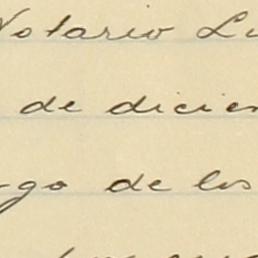 Notario Lu
de dicien
go de los